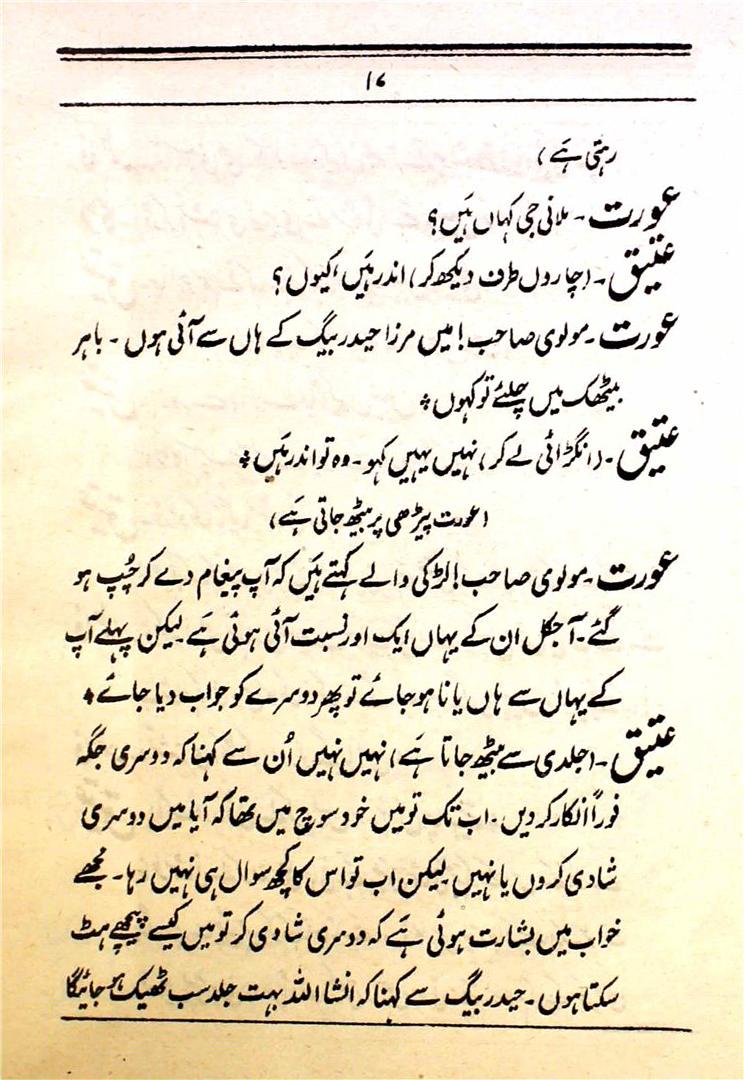 ۱۷
رہتی ہَے)
عورت ۔ ملانی جی کہاں ہَیں؟
عتیق ۔ (چاروں طرف دیکھ کر) اندر ہَیں، کیوں؟
عورت ۔ مولوی صاحب! میں مرزا حیدر بیگ کے ہاں سے آئی ہوں ۔ باہر
بیٹھک میں چلئے تو کہوں *
عتیق ۔ (انگڑائی لے کر) نہیں یہیں کہو ۔ وہ تو اندر ہَیں *
(عورت پیڑھی پر بیٹھ جاتی ہَے)
عورت ۔ مولوی صاحب! لڑکی والے کہتے ہَیں کہ آپ پیغام دے کر چُپ ہو
گئے ۔ آجکل ان کے یہاں ایک اور نسبت آئی ہوئی ہَے لیکن پہلے آپ
کے یہاں سے ہاں یا نا ہو جائے تو پھر دوسرے کو جواب دیا جائے *
عتیق ۔ (جلدی سے بیٹھ جاتا ہَے) نہیں نہیں اُن سے کہنا کہ دوسری جگہ
فوراً انکار کر دیں ۔ اب تک تو میں خود سوچ میں تھا کہ آیا میں دوسری
شادی کروں یا نہیں لیکن اب تو اس کا کچھ سوال ہی نہیں رہا ۔ مُجھے
خواب میں بشارت ہوئی ہَے کہ دوسری شادی کر تو میں کیسے پیچھے ہٹ
سکتا ہوں ۔ حیدر بیگ سے کہنا کہ انشا اللہ بہت جلد سب ٹھیک ہو جائیگا